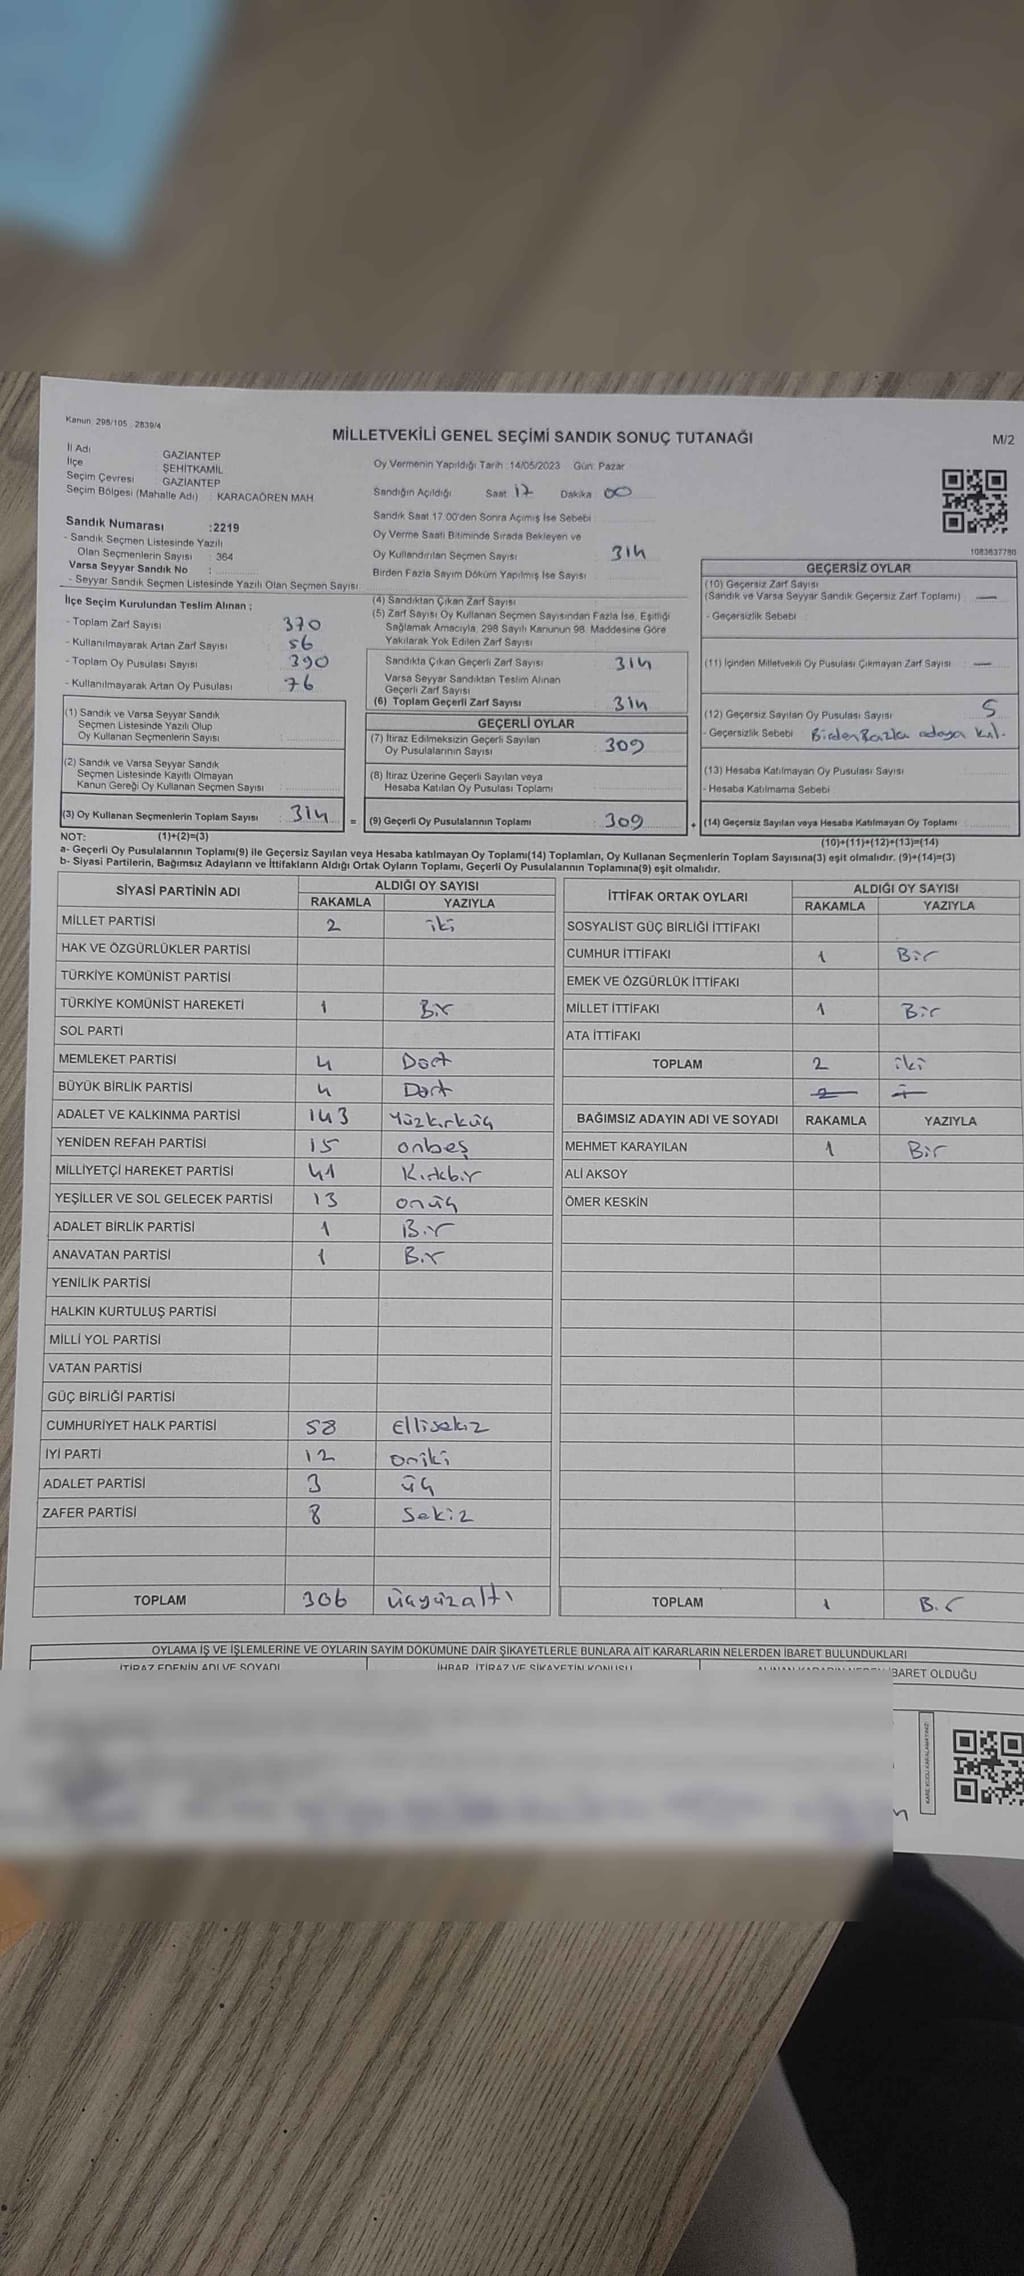 Kanun 298/105 , 2839/4
MİLLETVEKİLİ GENEL SEÇİMİ SANDIK SONUÇ TUTANAĞI
M/2
İl Adı : GAZİANTEP
İlçe : ŞEHİTKAMİL
Seçim Çevresi : GAZİANTEP
Seçim Bölgesi (Mahalle Adı) : KARACAÖREN MAH
Oy Vermenin Yapıldığı Tarih : 14/05/2023 Gün: Pazar
Sandığın Açıldığı Saat 17 Dakika 00
Sandık Saat 17.00'den Sonra Açımış İse Sebebi :
Oy Verme Saati Bitiminde Sırada Bekleyen ve
Oy Kullandırılan Seçmen Sayısı : 314
Birden Fazla Sayım Döküm Yapılmış İse Sayısı
1083637780
Sandık Numarası :2219
- Sandık Seçmen Listesinde Yazılı
Olan Seçmenlerin Sayısı : 364
Varsa Seyyar Sandık No :
- Seyyar Sandık Seçmen Listesinde Yazılı Olan Seçmen Sayısı
İlçe Seçim Kurulundan Teslim Alınan ;
- Toplam Zarf Sayısı : 370
- Kullanılmayarak Artan Zarf Sayısı : 56
- Toplam Oy Pusulası Sayısı : 390
- Kullanılmayarak Artan Oy Pusulası : 76
(1) Sandık ve Varsa Seyyar Sandık
Seçmen Listesinde Yazılı Olup
Oy Kullanan Seçmenlerin Sayısı :
(2) Sandık ve Varsa Seyyar Sandık
Seçmen Listesinde Kayıtlı Olmayan
Kanun Gereği Oy Kullanan Seçmen Sayısı :
(3) Oy Kullanan Seçmenlerin Toplam Sayısı : 314
(4) Sandıktan Çıkan Zarf Sayısı :
(5) Zarf Sayısı Oy Kullanan Seçmen Sayısından Fazla İse, Eşitliği
Sağlamak Amacıyla, 298 Sayılı Kanunun 98. Maddesine Göre
Yakılarak Yok Edilen Zarf Sayısı
Sandıkta Çıkan Geçerli Zarf Sayısı : 314
Varsa Seyyar Sandıktan Teslim Alınan
Geçerli Zarf Sayısı
(6) Toplam Geçerli Zarf Sayısı : 314
GEÇERLİ OYLAR
(7) İtiraz Edilmeksizin Geçerli Sayılan
Oy Pusulalarının Sayısı : 309
(8) İtiraz Üzerine Geçerli Sayılan veya
Hesaba Katılan Oy Pusulası Toplamı :
= (9) Geçerli Oy Pusulalarının Toplamı : 309
GEÇERSİZ OYLAR
(10) Geçersiz Zarf Sayısı
(Sandık ve Varsa Seyyar Sandık Geçersiz Zarf Toplamı) : —
- Geçersizlik Sebebi :
(11) İçinden Milletvekili Oy Pusulası Çıkmayan Zarf Sayısı : —
(12) Geçersiz Sayılan Oy Pusulası Sayısı : 5
- Geçersizlik Sebebi Birden Fazla adaya kul.
(13) Hesaba Katılmayan Oy Pusulası Sayısı :
- Hesaba Katılmama Sebebi :
+ (14) Geçersiz Sayılan veya Hesaba Katılmayan Oy Toplamı :
NOT: (1)+(2)=(3)
(10)+(11)+(12)+(13)=(14)
a- Geçerli Oy Pusulalarının Toplamı(9) ile Geçersiz Sayılan veya Hesaba katılmayan Oy Toplamı(14) Toplamları, Oy Kullanan Seçmenlerin Toplam Sayısına(3) eşit olmalıdır. (9)+(14)=(3)
b- Siyasi Partilerin, Bağımsız Adayların ve İttifakların Aldığı Ortak Oyların Toplamı, Geçerli Oy Pusulalarının Toplamına(9) eşit olmalıdır.
SİYASİ PARTİNİN ADI ALDIĞI OY SAYISI
RAKAMLA YAZIYLA
MİLLET PARTİSİ 2 iki
HAK VE ÖZGÜRLÜKLER PARTİSİ
TÜRKİYE KOMÜNİST PARTİSİ
TÜRKİYE KOMÜNİST HAREKETİ 1 Bir
SOL PARTİ
MEMLEKET PARTİSİ 4 Dört
BÜYÜK BİRLİK PARTİSİ 4 Dört
ADALET VE KALKINMA PARTİSİ 143 Yüzkırküç
YENİDEN REFAH PARTİSİ 15 onbeş
MİLLİYETÇİ HAREKET PARTİSİ 41 Kırkbir
YEŞİLLER VE SOL GELECEK PARTİSİ 13 onüç
ADALET BİRLİK PARTİSİ 1 Bir
ANAVATAN PARTİSİ 1 Bir
YENİLİK PARTİSİ
HALKIN KURTULUŞ PARTİSİ
MİLLİ YOL PARTİSİ
VATAN PARTİSİ
GÜÇ BİRLİĞİ PARTİSİ
CUMHURİYET HALK PARTİSİ 58 Ellisekiz
İYİ PARTİ 12 oniki
ADALET PARTİSİ 3 üç
ZAFER PARTİSİ 8 Sekiz
TOPLAM 306 üçyüzaltı
İTTİFAK ORTAK OYLARI ALDIĞI OY SAYISI
RAKAMLA YAZIYLA
SOSYALİST GÜÇ BİRLİĞİ İTTİFAKI
CUMHUR İTTİFAKI 1 Bir
EMEK VE ÖZGÜRLÜK İTTİFAKI
MİLLET İTTİFAKI 1 Bir
ATA İTTİFAKI
TOPLAM 2 iki
BAĞIMSIZ ADAYIN ADI VE SOYADI RAKAMLA YAZIYLA
MEHMET KARAYILAN 1 Bir
ALİ AKSOY
ÖMER KESKİN
TOPLAM 1 Bir
OYLAMA İŞ VE İŞLEMLERİNE VE OYLARIN SAYIM DÖKÜMÜNE DAİR ŞİKAYETLERLE BUNLARA AİT KARARLARIN NELERDEN İBARET BULUNDUKLARI
İTİRAZ EDENİN ADI VE SOYADI İHBAR, İTİRAZ VE ŞİKAYETİN KONUSU BARET OLDUĞU